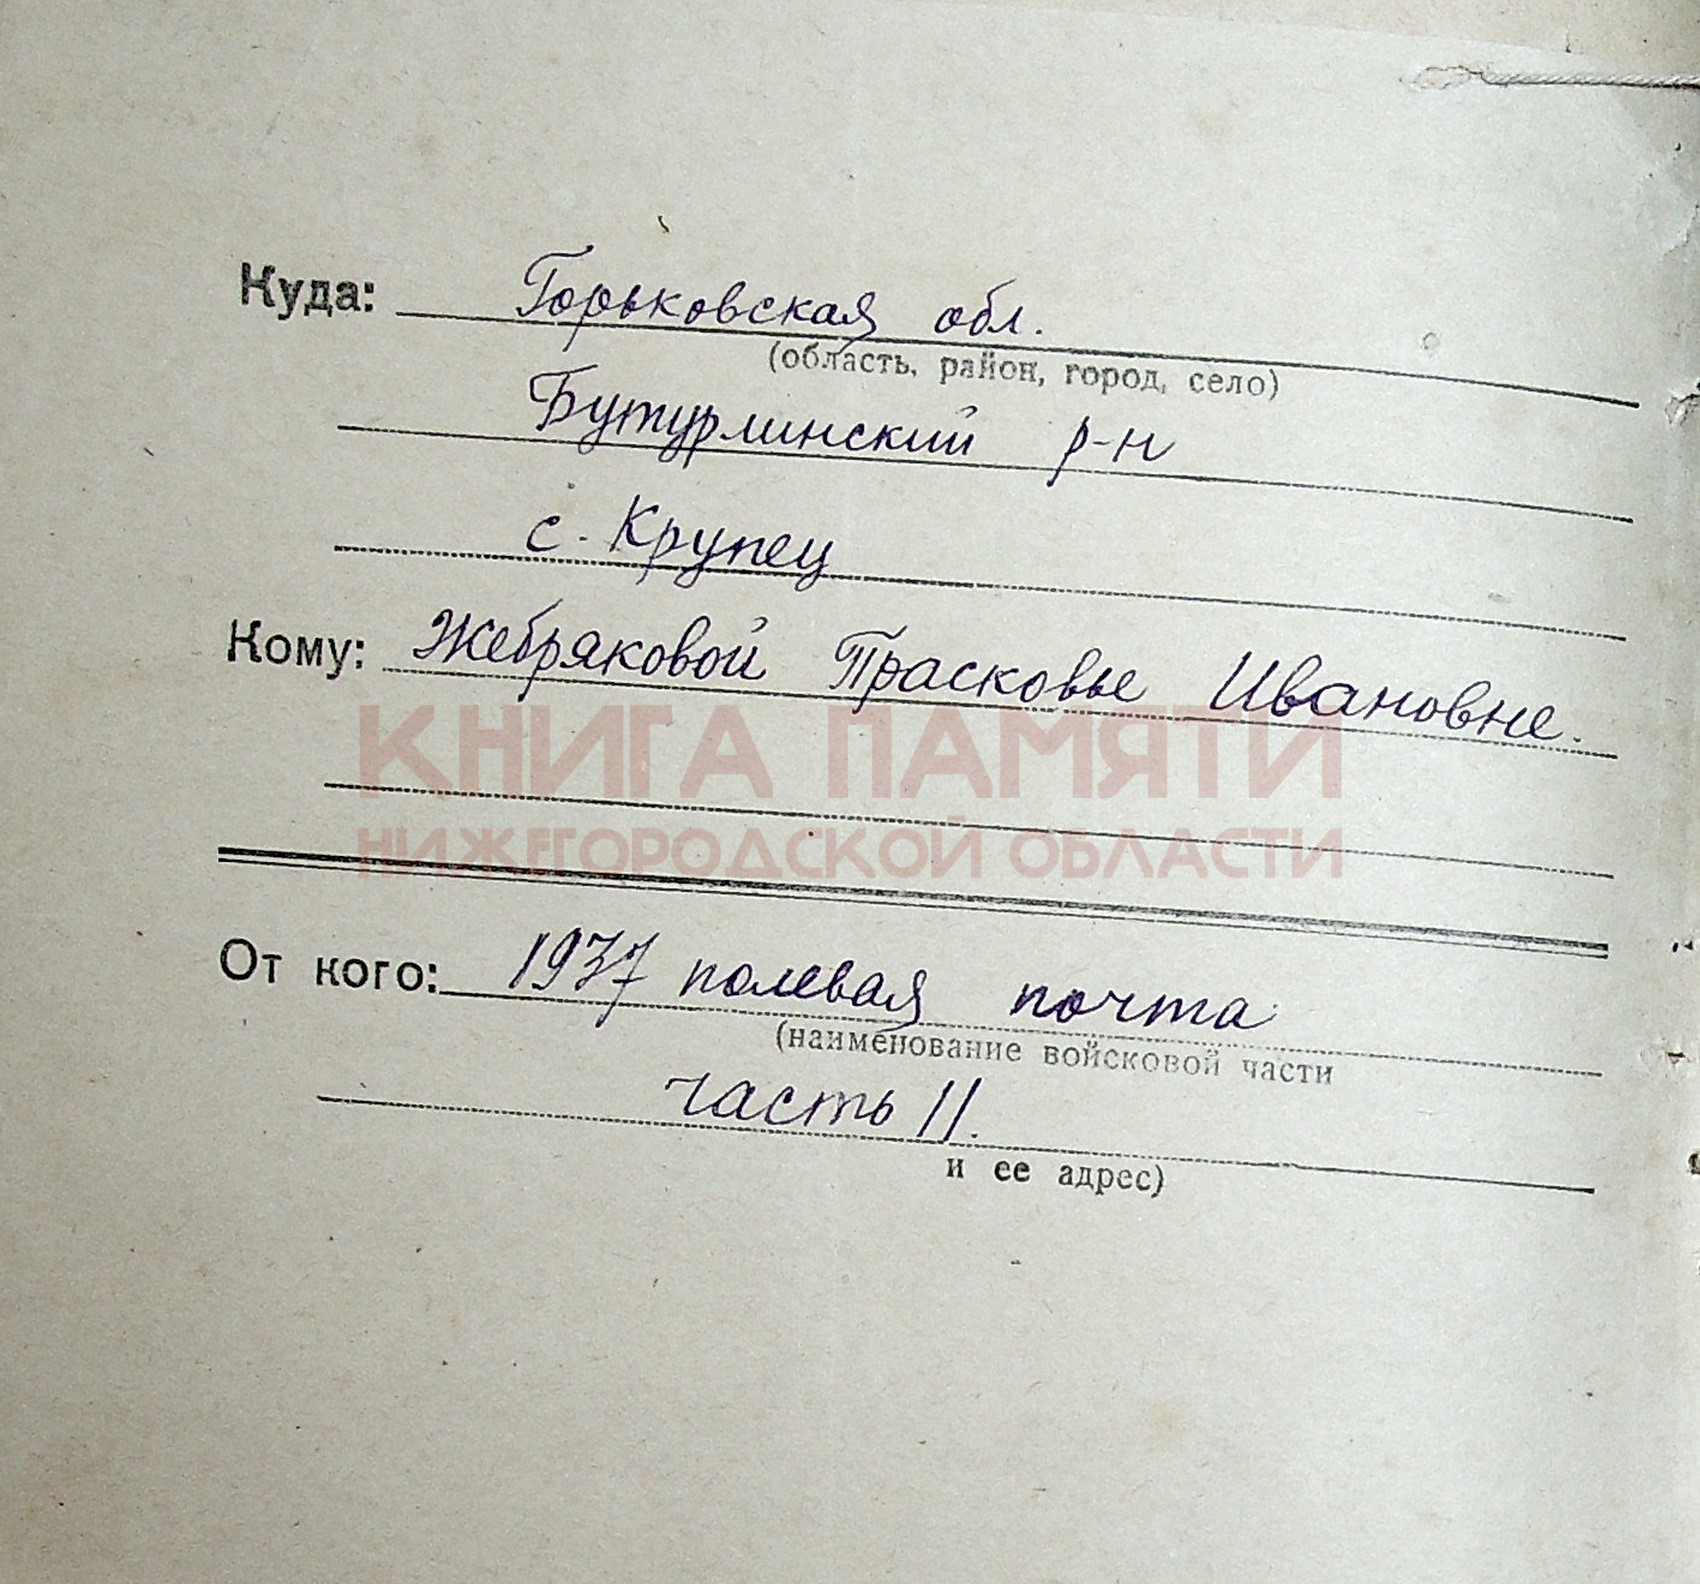 Куда: Горьковская обл.
(область, район, город, село)
Бутурлинский р-н
с. Крупец
Кому: Жебряковой Прасковье Ивановне.
КНИГА ПАМЯТИ
НИЖЕГОРОДСКОЙ ОБЛАСТИ
От кого: 1937 полевая почта
(наименование войсковой части
часть 11.
и ее адрес)